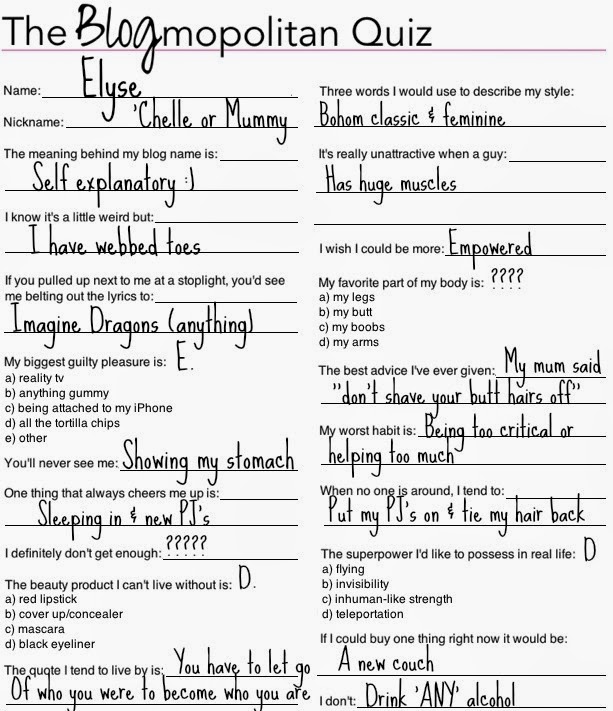 The Blogmopolitan Quiz
Name: Elyse
Nickname: 'Chelle or Mummy
The meaning behind my blog name is:
Self explanatory :)
I know it's a little weird but:
I have webbed toes
If you pulled up next to me at a stoplight, you'd see
me belting out the lyrics to:
Imagine Dragons (anything)
My biggest guilty pleasure is: E.
a) reality tv
b) anything gummy
c) being attached to my iPhone
d) all the tortilla chips
e) other
You'll never see me: Showing my stomach
One thing that always cheers me up is:
Sleeping in & new PJ's
I definitely don't get enough: ?????
The beauty product I can't live without is: D.
a) red lipstick
b) cover up/concealer
c) mascara
d) black eyeliner
The quote I tend to live by is: You have to let go
Of who you were to become who you are
Three words I would use to describe my style:
Bohom classic & feminine
It's really unattractive when a guy:
Has huge muscles
I wish I could be more: Empowered
My favorite part of my body is: ????
a) my legs
b) my butt
c) my boobs
d) my arms
The best advice I've ever given: My mum said
"don't shave your butt hairs off"
My worst habit is: Being too critical or
helping too much
When no one is around, I tend to:
Put my PJ's on & tie my hair back
The superpower I'd like to possess in real life: D
a) flying
b) invisibility
c) inhuman-like strength
d) teleportation
If I could buy one thing right now it would be:
A new couch
I don't: Drink 'ANY' alcohol